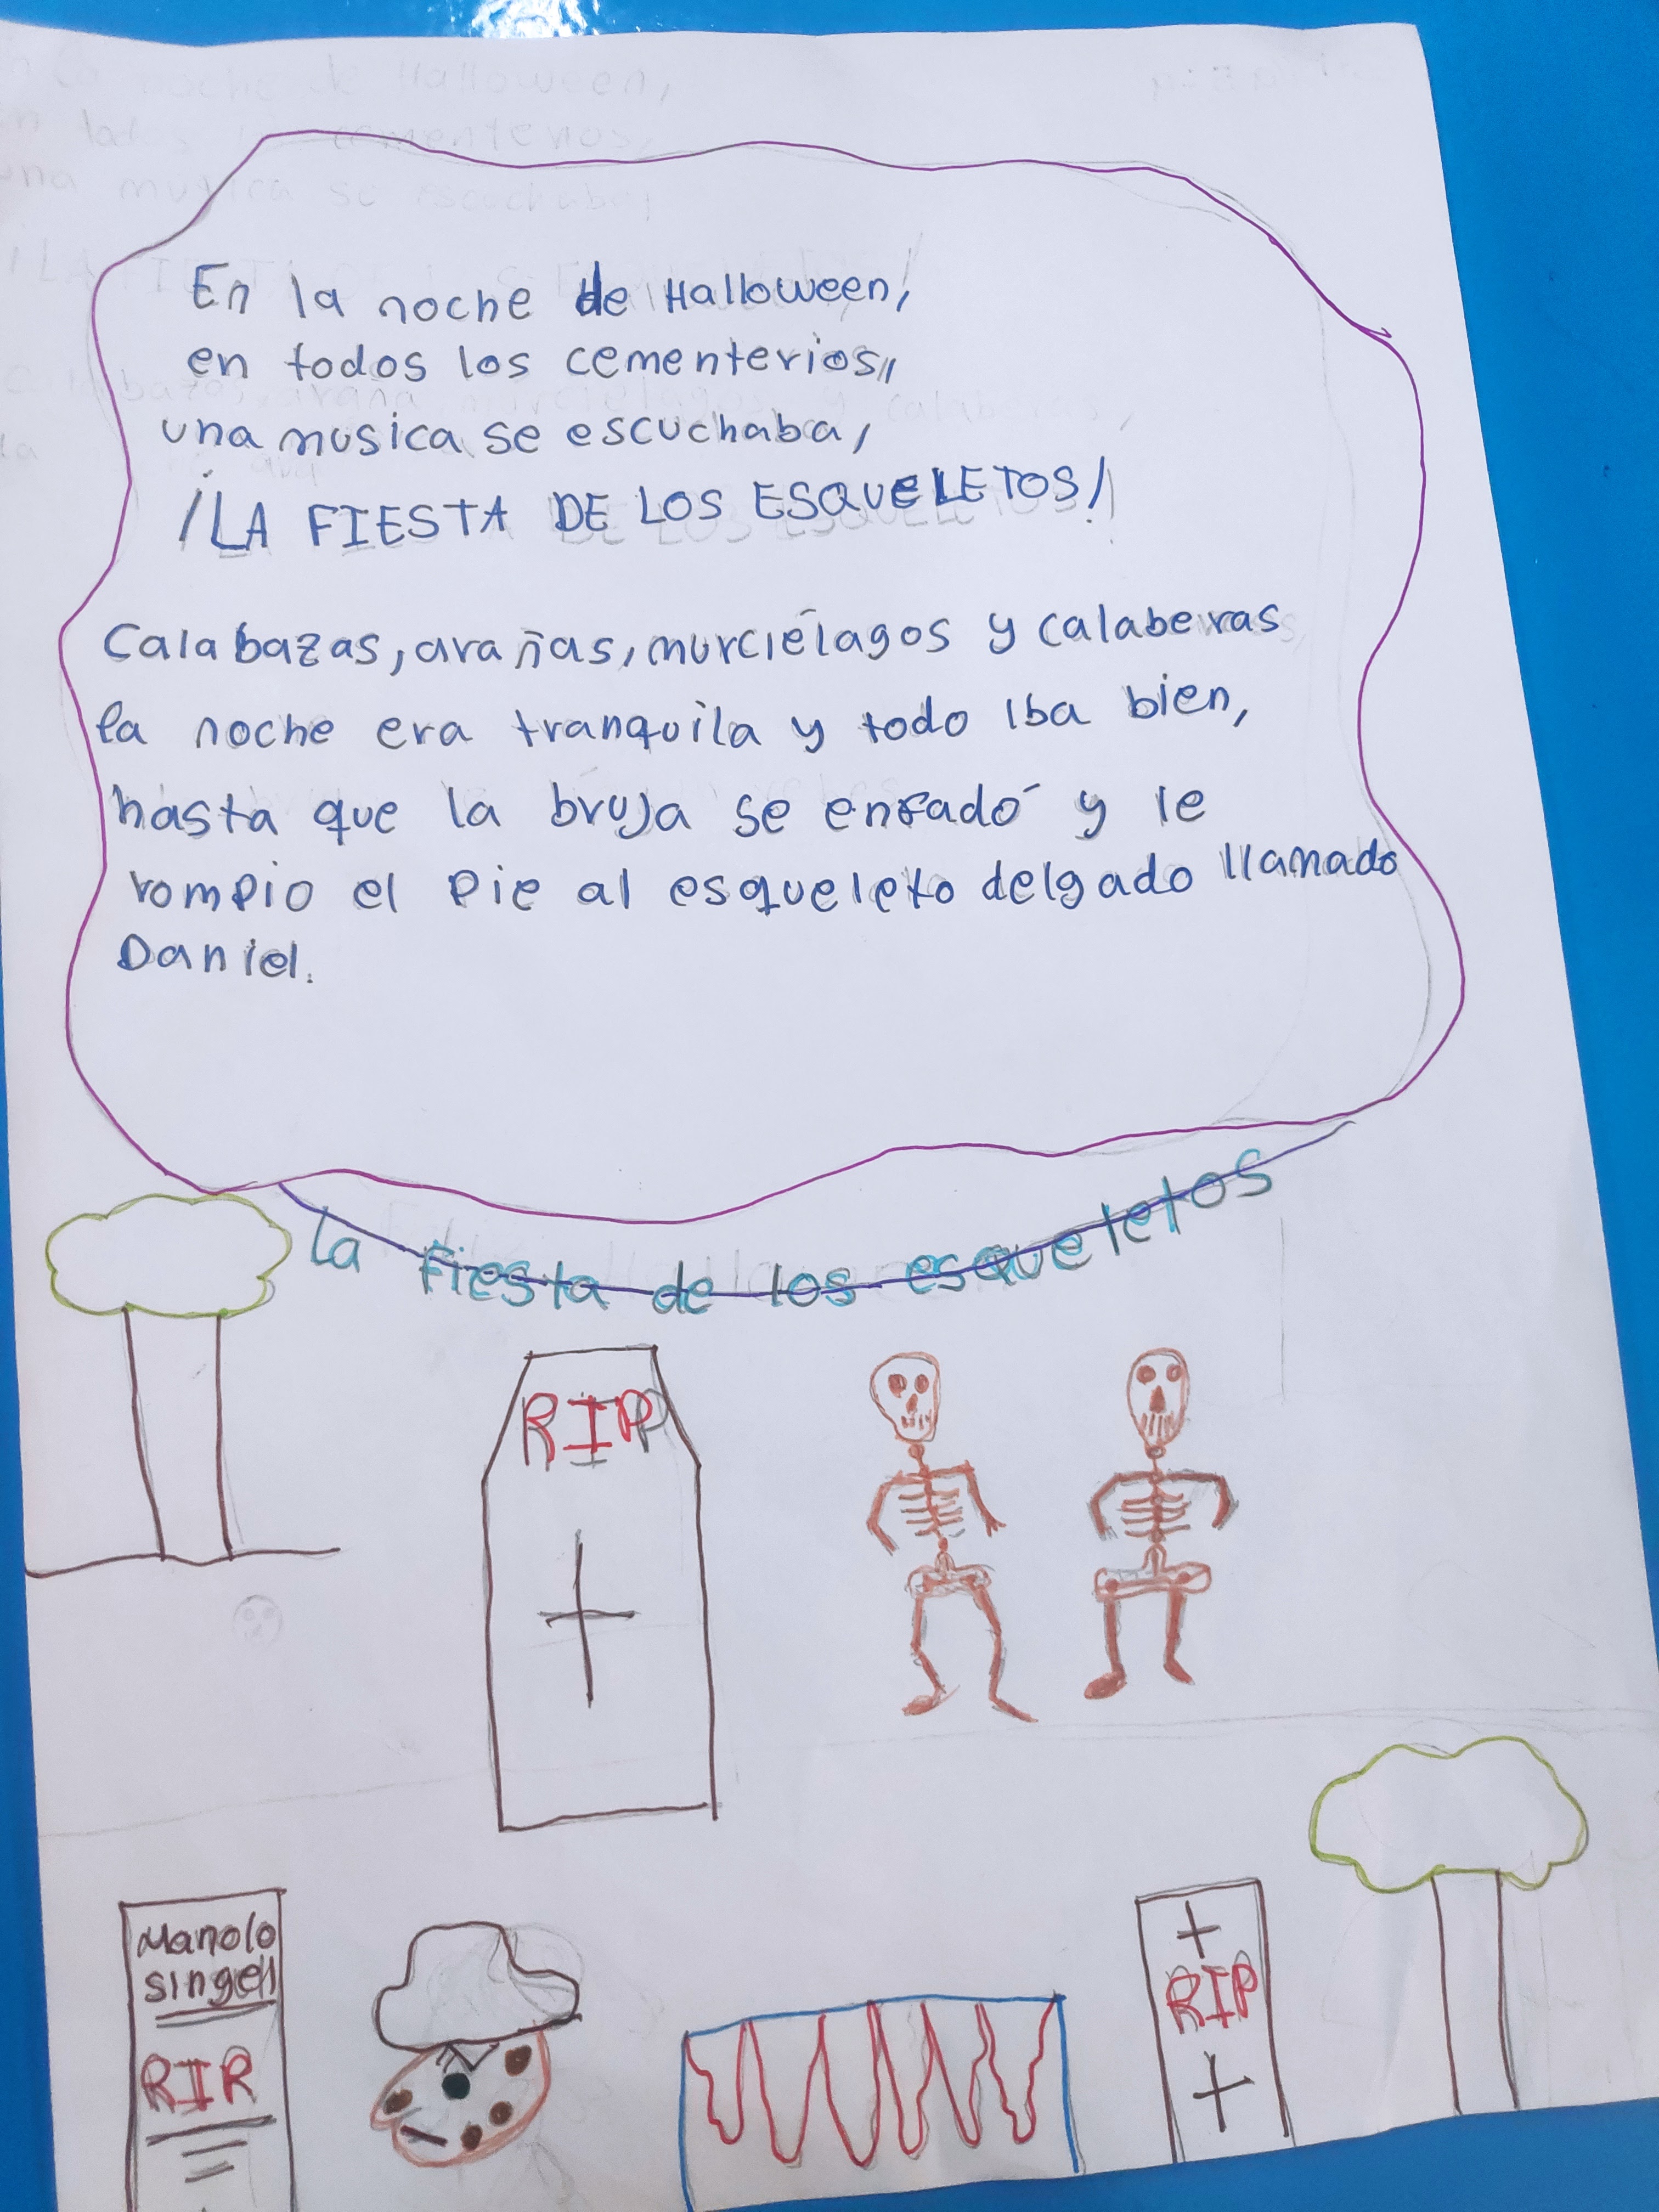 En la noche de Halloween,
en todos los cementerios,
una musica se escuchaba,
¡LA FIESTA DE LOS ESQUELETOS!
Calabazas, arañas, murciélagos y calaberas
la noche era tranquila y todo iba bien,
hasta que la bruja se enfadó y le
rompio el pie al esqueleto delgado llamado
Daniel.
la fiesta de los esqueletos
RIP
Manolo
singen
RIP
RIP